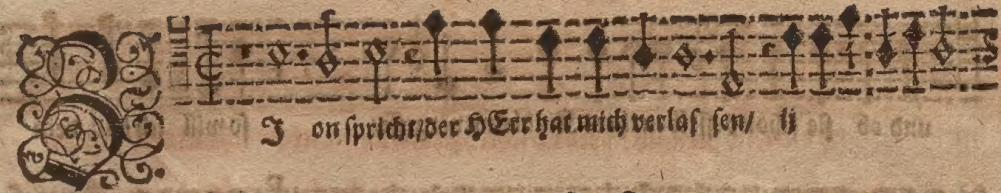 ZJ on spricht/der HErr hat mich verlas sen/ ij